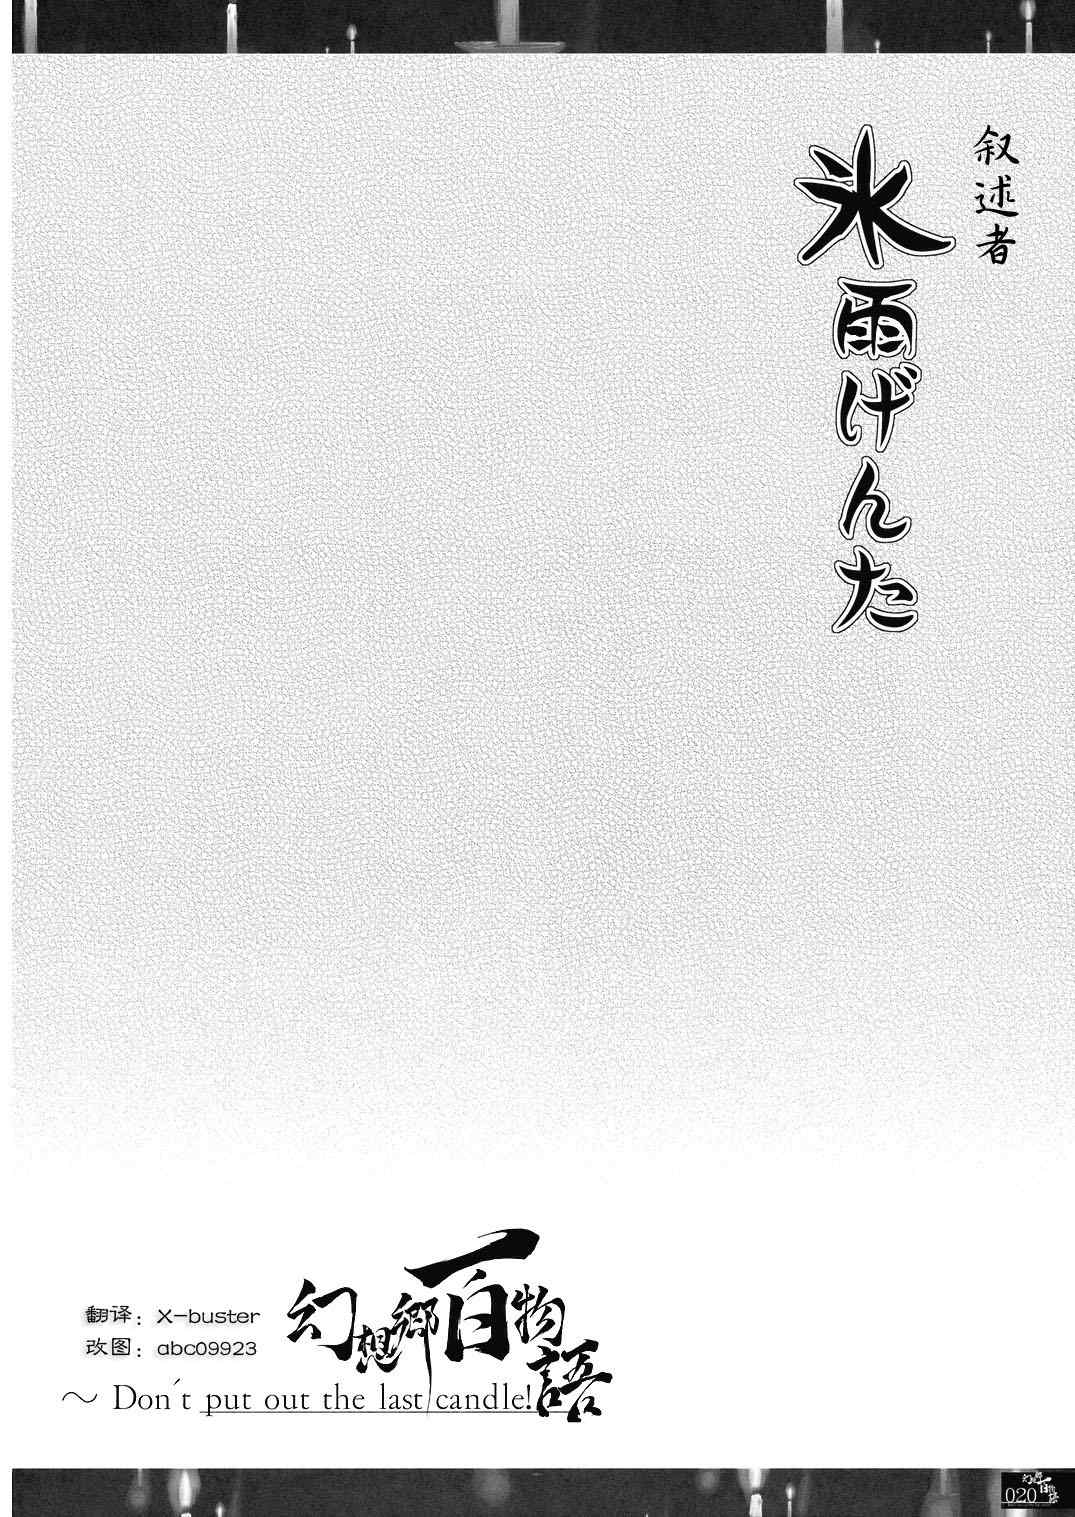 叙述者
氷雨げんた
翻译：X-buster
改图：abc09923
幻想郷百物語
～ Don´t put out the last candle!
020
幻想郷百物語